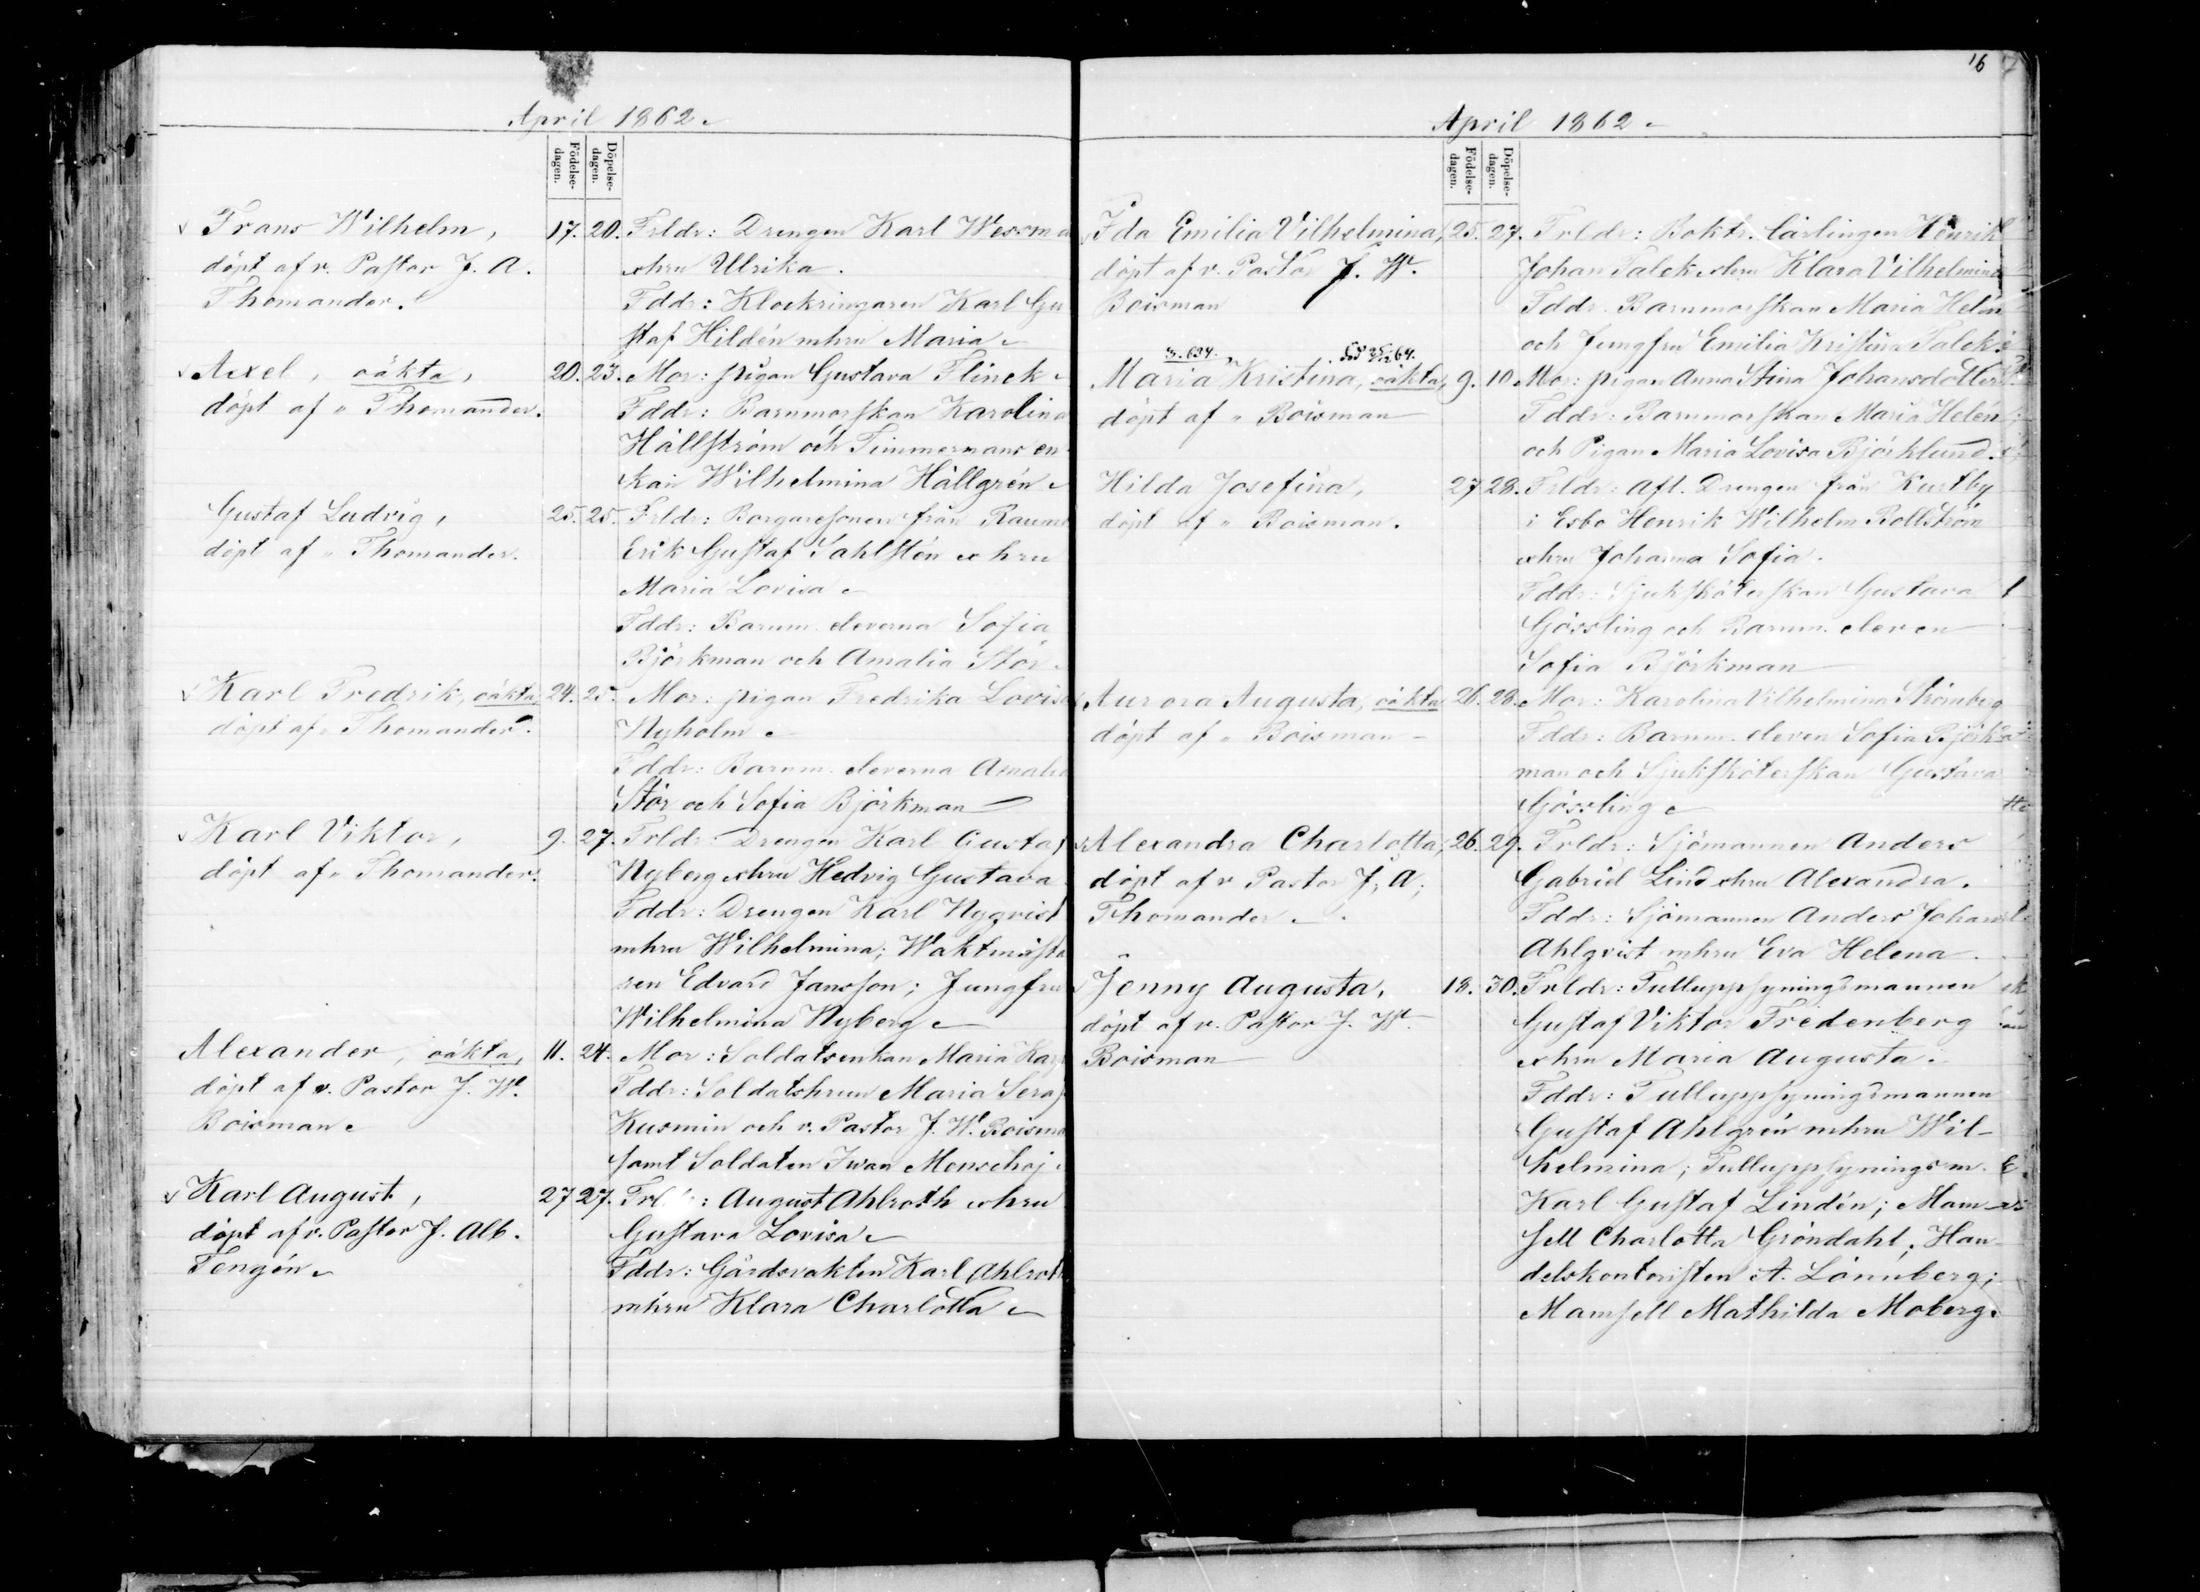 April 1862.
Födelse-
dagen.
Döpelse-
dagen.
Frans Wilhelm, 17. 20. Frldr: Drengen Karl Wessma
döpt af v. Pastor J. A. o hru Ulrika.
Thomander. Fddr: Klockringaren Karl Gu
staf Hildén m hru Maria
Axel, oäkta, 20. 23. Mor: pigan Gustava Flinck
döpt af " Thomander. Fddr: Barnmorskan Karolina
Hällström och Timmermans en
kan Wilhelmina Hällgrén
Gustaf Ludvig, 25. 25. Frldr: Borgaresonen från Raumo
döpt af " Thomander. Erik Gustaf Sahlstén o hru
Maria Lovisa
Fddr: Barnm. eleverna Sofia
Björkman och Amalia Stör
Karl Fredrik, oäkta, 24. 25. Mor: pigan Fredrika Lovisa
döpt af " Thomander. Nyholm
Fddr: Barnm. eleverna Amalia
Stör och Sofia Björkman
Karl Viktor, 9. 27. Frldr: Drengen Karl Gustaf
döpt af " Thomander. Nyberg o hru Hedvig Gustava
Fddr: Drengen Karl Nyqvist
m hru Wilhelmina; Waktmästa
ren Edvard Jansson; Jungfru
Wilhelmina Nyberg
Alexander, oäkta, 11. 24. Mor: Soldatsenkan Maria
döpt af v. Pastor J. W. Fddr: Soldatshrun Maria
Boisman Kusmin och v. Pastor J. W. Boisma
samt Soldaten Iwan
Karl August, 27 27. August Ahlroth o hru
döpt af v. Pastor J. Alb. Gustava Lovisa
Tengén Fddr: Gårdsvakten Karl Ahlroth
m hru Klara Charlotta
16
April 1862
Födelse-
dagen.
Döpelse-
dagen.
Ida Emilia Vilhelmina, 25. 27. Frldr: Boktr. Lärlingen Henrik
döpt af v. Pastor J. W. Johan Falck o hru Klara Vilhelmina
Boisman Fddr. Barnmorskan Maria Helén
och Jungfru Emilia Kristina Falck
Maria Kristina, oäkta, 9. 10 Mor: pigan Anna Stina Johansdotter
döpt af " Boisman Fddr: Barnmorskan Maria Helén
och Pigan Maria Lovisa Björklund.
Hilda Josefina, 27 28. Frldr: Afl. Drengen från Kurtby
döpt af " Boisman. i Esbo Henrik Wilhelm Rollström
o hru Johanna Sofia.
Fddr: Sjuksköterskan Gustava
Gössling och Barnm. eleven
Sofia Björkman
Aurora Augusta, oäkta 26. 28. Mor: Karolina Vilhelmina Strömberg
döpt af " Boisman Fddr: Barnm. eleven Sofia Björk
man och Sjuksköterskan Gustava
Gössling
Alexandra Charlotta, 26. 29. Frldr: Sjömannen Anders
döpt af v Pastor J. A. Gabriel Lind o hru Alexandra.
Thomander Fddr: Sjömannen Anders Johan
Ahlqvist m hru Eva Helena.
Jenny Augusta, 18. 30. Frldr: Tulluppsyningsmannen
döpt af v. Pastor J. W. Gustaf Viktor Fredenberg
Boisman o hru Maria Augusta.
Fddr: Tulluppsyningsmannen
Gustaf Ahlgrén m hru Wil-
helmina; Tulluppsyningsm.
Karl Gustaf Lindén; Mam-
sell Charlotta Gröndahl; Han-
delskontoristen A. Lönnberg;
Mamsell Mathilda Moberg.